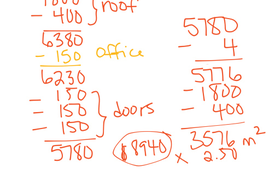 - 400 } roof
6380
- 150 office
6230
- 150
- 150 } doors
- 150
5780
$8940
5780
- 4
5776
- 1800
- 400
3576 m²
x 2.50